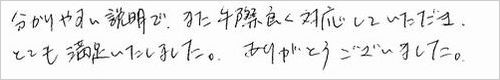 分がりやすい説明で、また手際良く対応していただき、
とても満足いたしました。ありがとうございました。